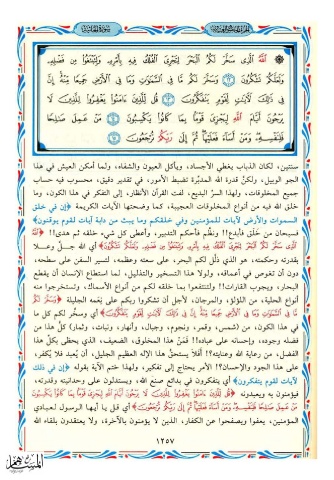 الجزء الخامس والعشرون
سورة الجاثية
اللَّهُ الَّذِي سَخَّرَ لَكُمُ الْبَحْرَ لِتَجْرِيَ الْفُلْكُ فِيهِ بِأَمْرِهِ وَلِتَبْتَغُوا مِن فَضْلِهِ
وَلَعَلَّكُمْ تَشْكُرُونَ ١٢ وَسَخَّرَ لَكُم مَّا فِي السَّمَاوَاتِ وَمَا فِي الْأَرْضِ جَمِيعًا مِّنْهُ إِنَّ
فِي ذَلِكَ لَآيَاتٍ لِّقَوْمٍ يَتَفَكَّرُونَ ١٣ قُل لِّلَّذِينَ آمَنُوا يَغْفِرُوا لِلَّذِينَ لَا
يَرْجُونَ أَيَّامَ اللَّهِ لِيَجْزِيَ قَوْمًا بِمَا كَانُوا يَكْسِبُونَ ١٤ مَنْ عَمِلَ صَالِحًا
فَلِنَفْسِهِ وَمَنْ أَسَاءَ فَعَلَيْهَا ثُمَّ إِلَى رَبِّكُمْ تُرْجَعُونَ ١٥
سنتين، لكان الذباب يغطي الأجساد، ويأكل العيون والشفاه، ولما أمكن العيش في هذا
الجو الوبيل، ولكنّ قدرة الله المدبّرة تضبط الأمور، في تقدير دقيق، محسوب فيه حساب
جميع المخلوقات، ولهذا السرّ البديع، لفت القرآن الأنظار، إلى التفكر في هذا الكون، وما
خلق الله فيه من أنواع المخلوقات العجيبة، كما وضحتها الآيات الكريمة ﴿إن في خلق
السموات والأرض لآيات للمؤمنين وفي خلقكم وما يبث من دابة آيات لقوم يوقنون﴾
فسبحان من خَلَق فأبدع!! ونظَّم فأحكم التدبير، وأعطى كل شيء خلقه ثم هدى!! ﴿اللَّهُ
الَّذِي سَخَّرَ لَكُمُ الْبَحْرَ لِتَجْرِيَ الْفُلْكُ فِيهِ بِأَمْرِهِ وَلِتَبْتَغُوا مِن فَضْلِهِ وَلَعَلَّكُمْ تَشْكُرُونَ﴾ أي الله جلَّ وعلا
بقدرته وحكمته، هو الذي ذلَّل لكم البحر، على سعته وعظمه، لتسير السفن على سطحه،
دون أن تغوص في أعماقه، ولولا هذا التسخير والتذليل، لما استطاع الإنسان أن يقطع
البحار، ويجوب القارات!! ولتنتفعوا بما خلقه لكم من أنواع الأسماك، وتستخرجوا منه
أنواع الحلية، من اللؤلؤ، والمرجان، لأجل أن تشكروا ربكم على نِعَمه الجليلة ﴿وَسَخَّرَ لَكُم
مَّا فِي السَّمَاوَاتِ وَمَا فِي الْأَرْضِ جَمِيعًا مِّنْهُ إِنَّ فِي ذَلِكَ لَآيَاتٍ لِّقَوْمٍ يَتَفَكَّرُونَ﴾ أي وسخَّر لكم كل ما
في هذا الكون، من شمس، وقمر، ونجوم، وجبال، وأنهار، ونبات، وثمار، كلُّ هذا من
فضله وجوده، وإحسانه على عباده!! فَمَنْ هذا المخلوق، الضعيف، الذي يحظى بكل هذا
الفضل، من رعاية الله وعنايته؟! أفلا يستحقُّ هذا الإله العظيم الجليل، أن يُعبد فلا يُكفر،
على هذا الجود والإحسان؟! الأمر يحتاج إلى تفكير، ولهذا ختم الآية بقوله ﴿إن في ذلك
لآيات لقوم يتفكرون﴾ أي يتفكرون في بدائع صنع الله، ويستدلون على وحدانيته وقدرته،
فيؤمنون به ويعبدونه ﴿قُل لِّلَّذِينَ آمَنُوا يَغْفِرُوا لِلَّذِينَ لَا يَرْجُونَ أَيَّامَ اللَّهِ لِيَجْزِيَ قَوْمًا بِمَا كَانُوا يَكْسِبُونَ
مَنْ عَمِلَ صَالِحًا فَلِنَفْسِهِ وَمَنْ أَسَاءَ فَعَلَيْهَا ثُمَّ إِلَى رَبِّكُمْ تُرْجَعُونَ﴾ أي قل يا أيها الرسول لعبادي
المؤمنين، يعفوا ويصفحوا عن الكفار، الذين لا يؤمنون بالآخرة، ولا يعتقدون بلقاء الله
١٢٥٧